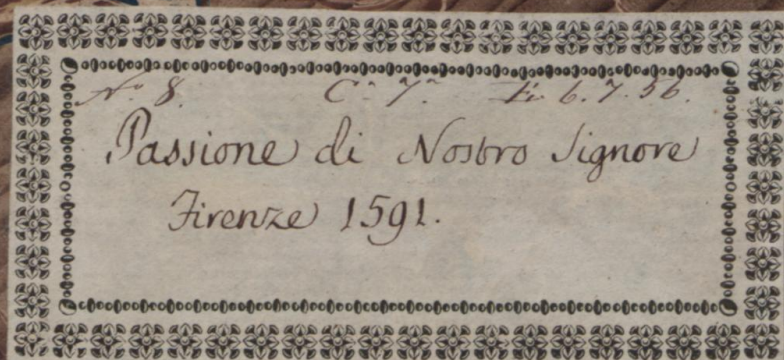 Nº 8. Cª 7ª Fi 6.7.56.
Passione di Nostro Signore
Firenze 1591.